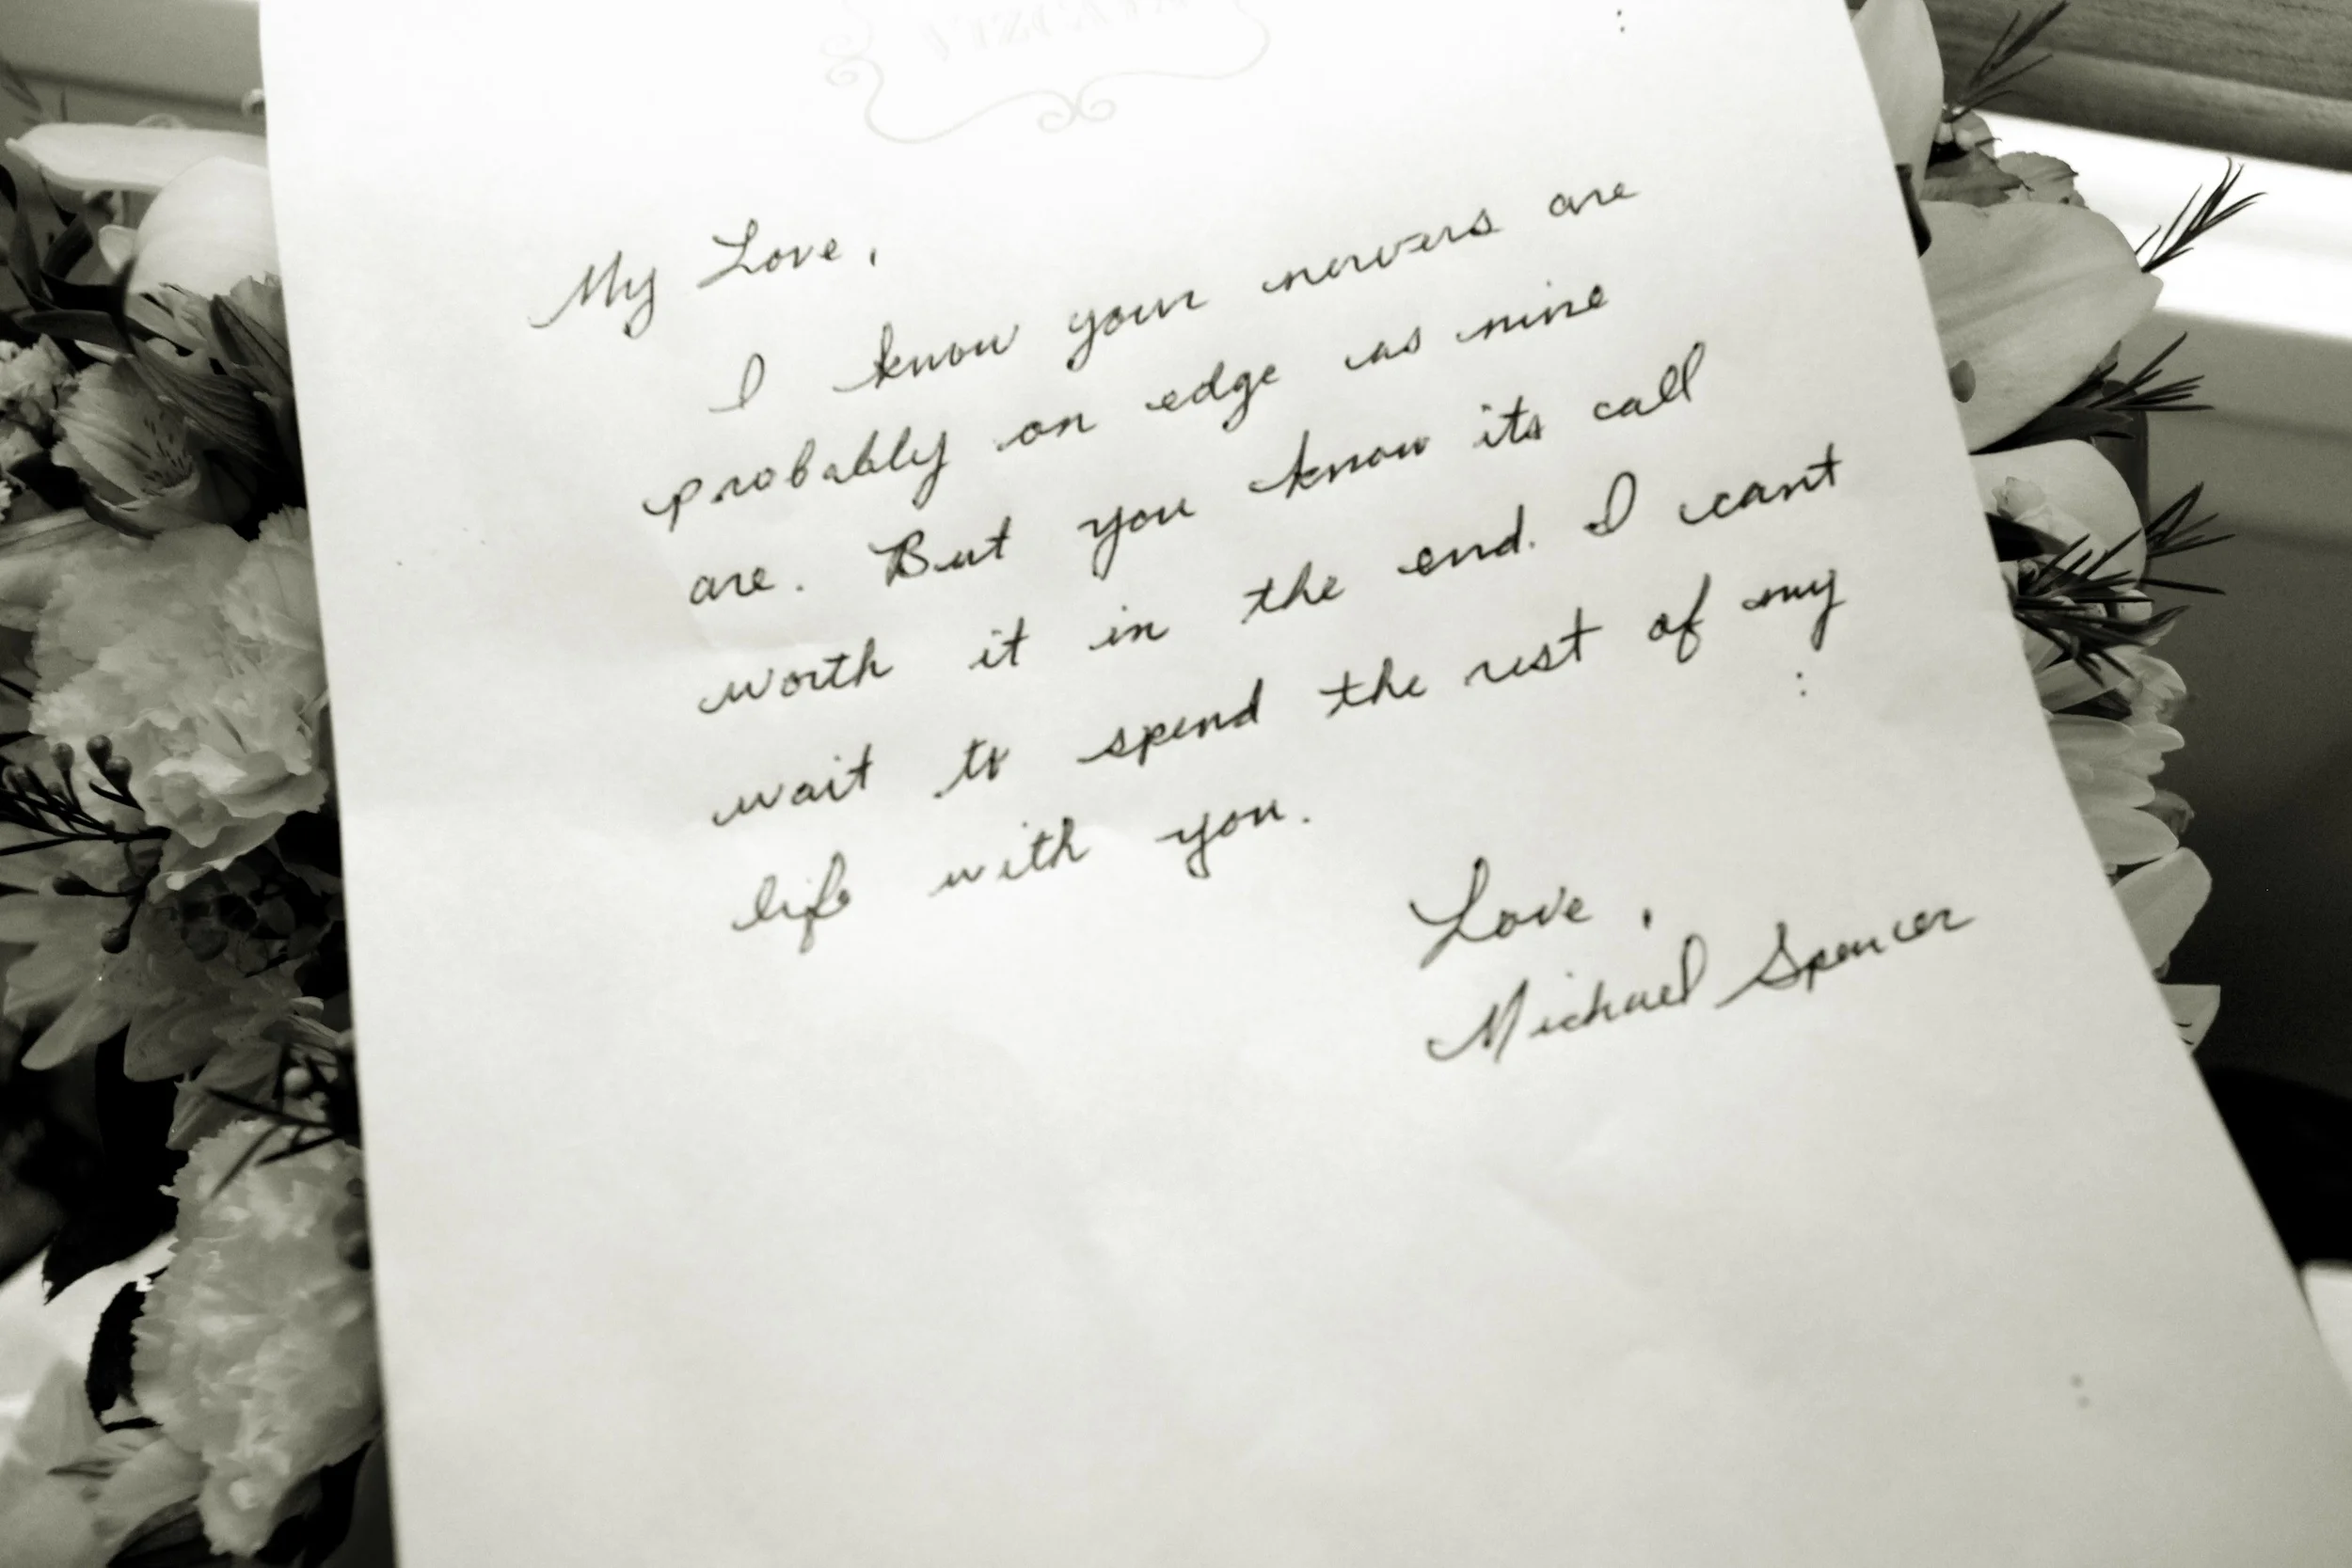 My Love,
I know your nervers are
probably on edge as mine
are. But you know its call
worth it in the end. I cant
wait to spend the rest of my
life with you.
Love,
Michael Spencer